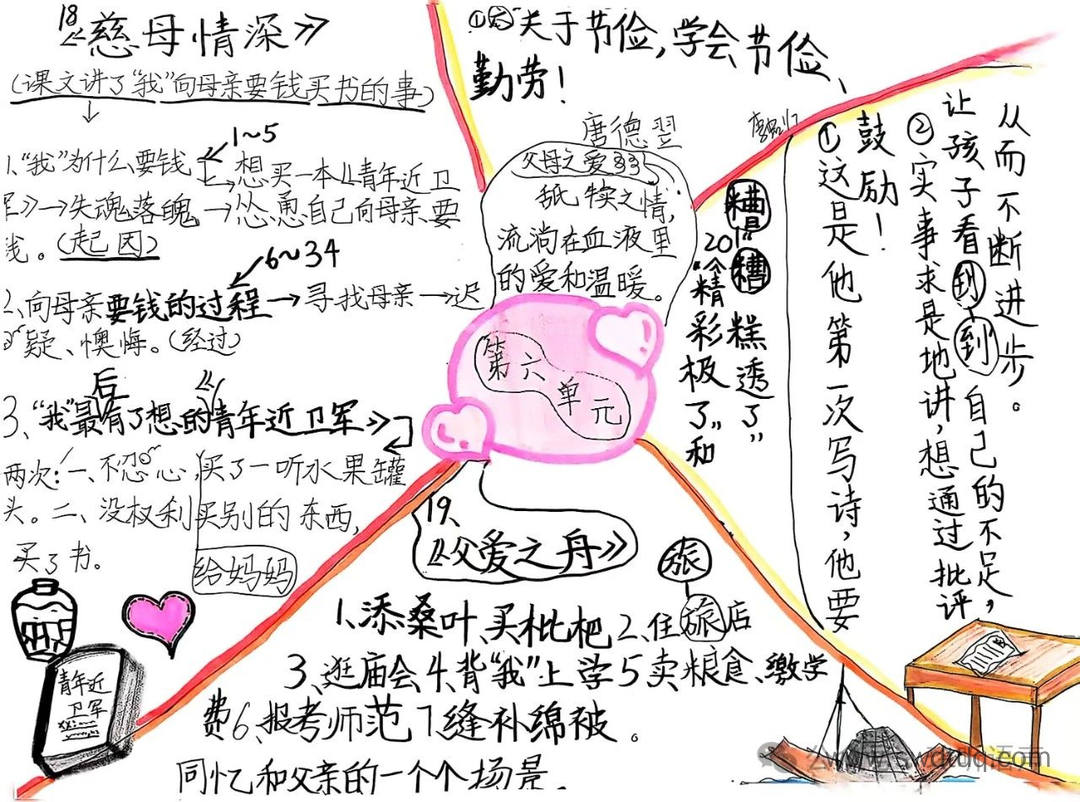 18
《慈母情深》
(课文讲了“我”向母亲要钱买书的事)
1~5
1.“我”为什么要钱→想买一本《青年近卫
军》→失魂落魄→怂恿自己向母亲要
钱。(起因)
6~34
2.向母亲要钱的过程→寻找母亲→迟
疑、懊悔。(经过)
后
3.“我”最有了想的《青年近卫军》
两次:一、不忍心,买了一听水果罐
头。二、没权利买别的东西,
买了书。
给妈妈
青年近
卫军
①关于节俭,学会节俭、
勤劳!
唐德翌
父母之爱
舐犊之情,
流淌在血液里
的爱和温暖。
第六
单元
20
“精彩极了”和
“糟糕透了”
糟
鼓励!
①这是他第一次写诗,他要
②实事求是地讲,想通过批评
让孩子看到自己的不足,
到
从而不断进步。
19、
《父爱之舟》
旅
1、添桑叶、买枇杷 2、住旅店
3、逛庙会 4、背“我”上学 5 卖粮食、缴学
费 6、报考师范 7、缝补绵被。
同忆和父亲的一个个场景.